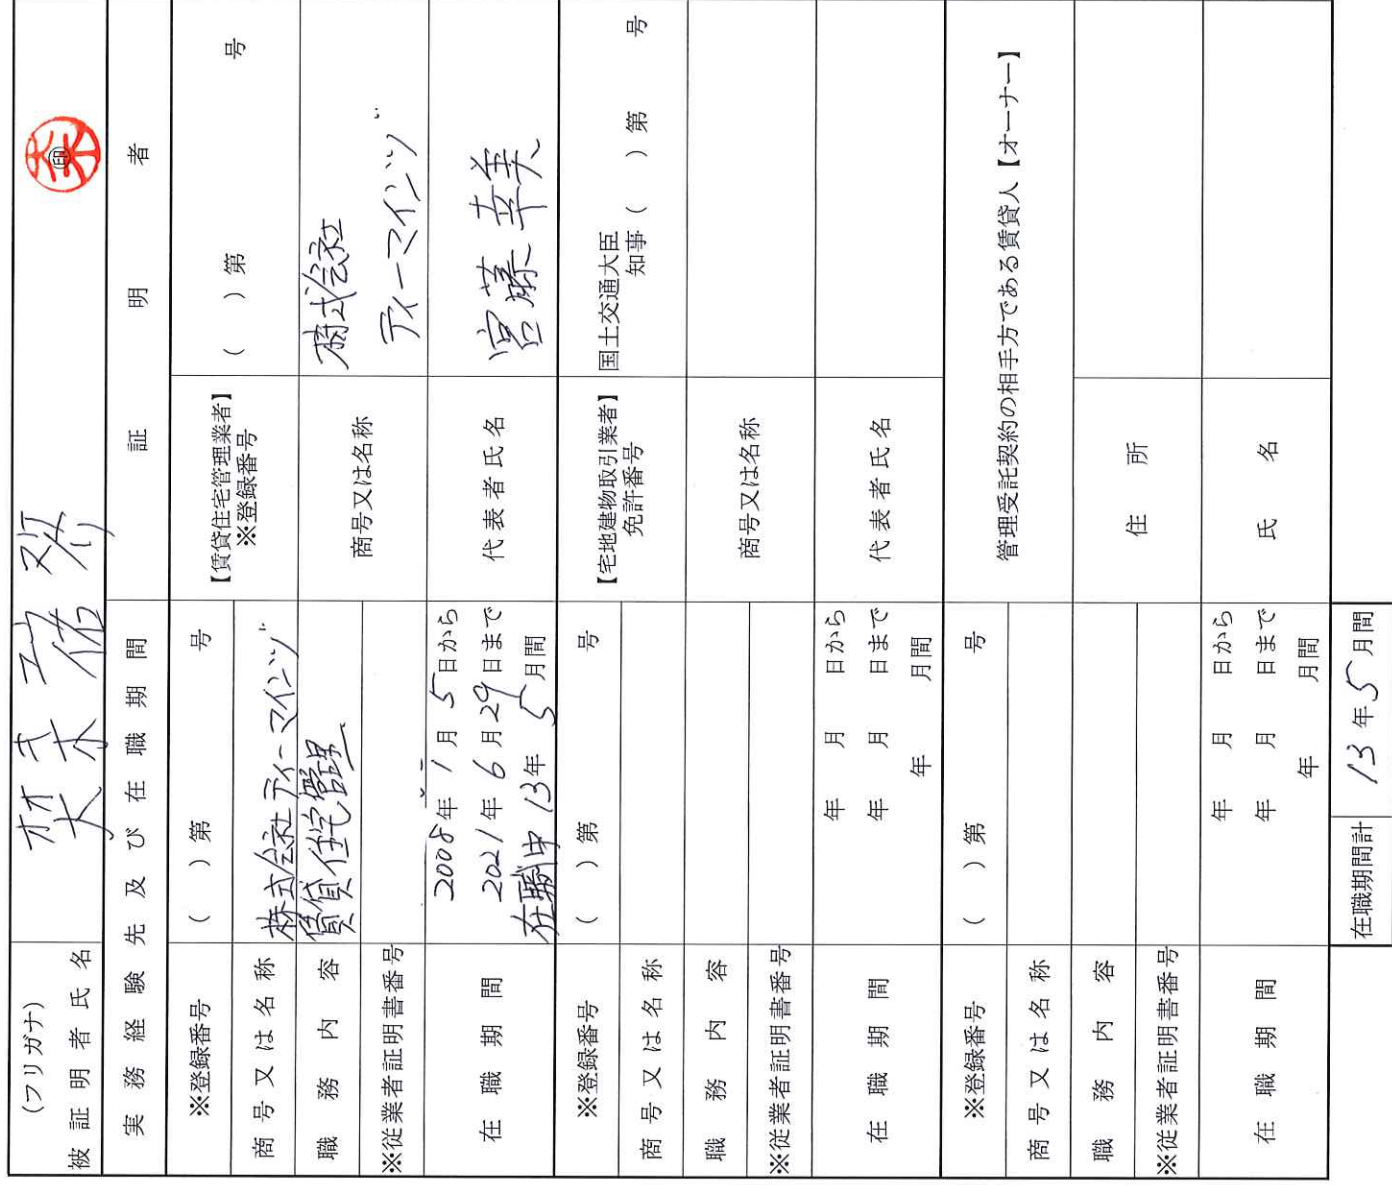 (フリガナ)
被証明者氏名
実務経験先及び在職期間
証明者
㊞
※登録番号
( )第 号
【賃貸住宅管理業者】
※登録番号
( )第 号
商号又は名称
株式会社ティーマインツ゛
商号又は名称
株式会社
ティーマインツ゛
職務内容
賃貸住宅管理
※従業者証明書番号
在職期間
2008年1月5日から
2021年6月29日まで
在職中 13年5月間
代表者氏名
宮藤幸美
※登録番号
( )第 号
【宅地建物取引業者】
免許番号
国土交通大臣
知事( )第 号
商号又は名称
商号又は名称
職務内容
※従業者証明書番号
在職期間
年 月 日から
年 月 日まで
年 月間
代表者氏名
※登録番号
( )第 号
管理受託契約の相手方である賃貸人【オーナー】
商号又は名称
職務内容
住所
※従業者証明書番号
在職期間
年 月 日から
年 月 日まで
年 月間
氏名
在職期間計
13年5月間